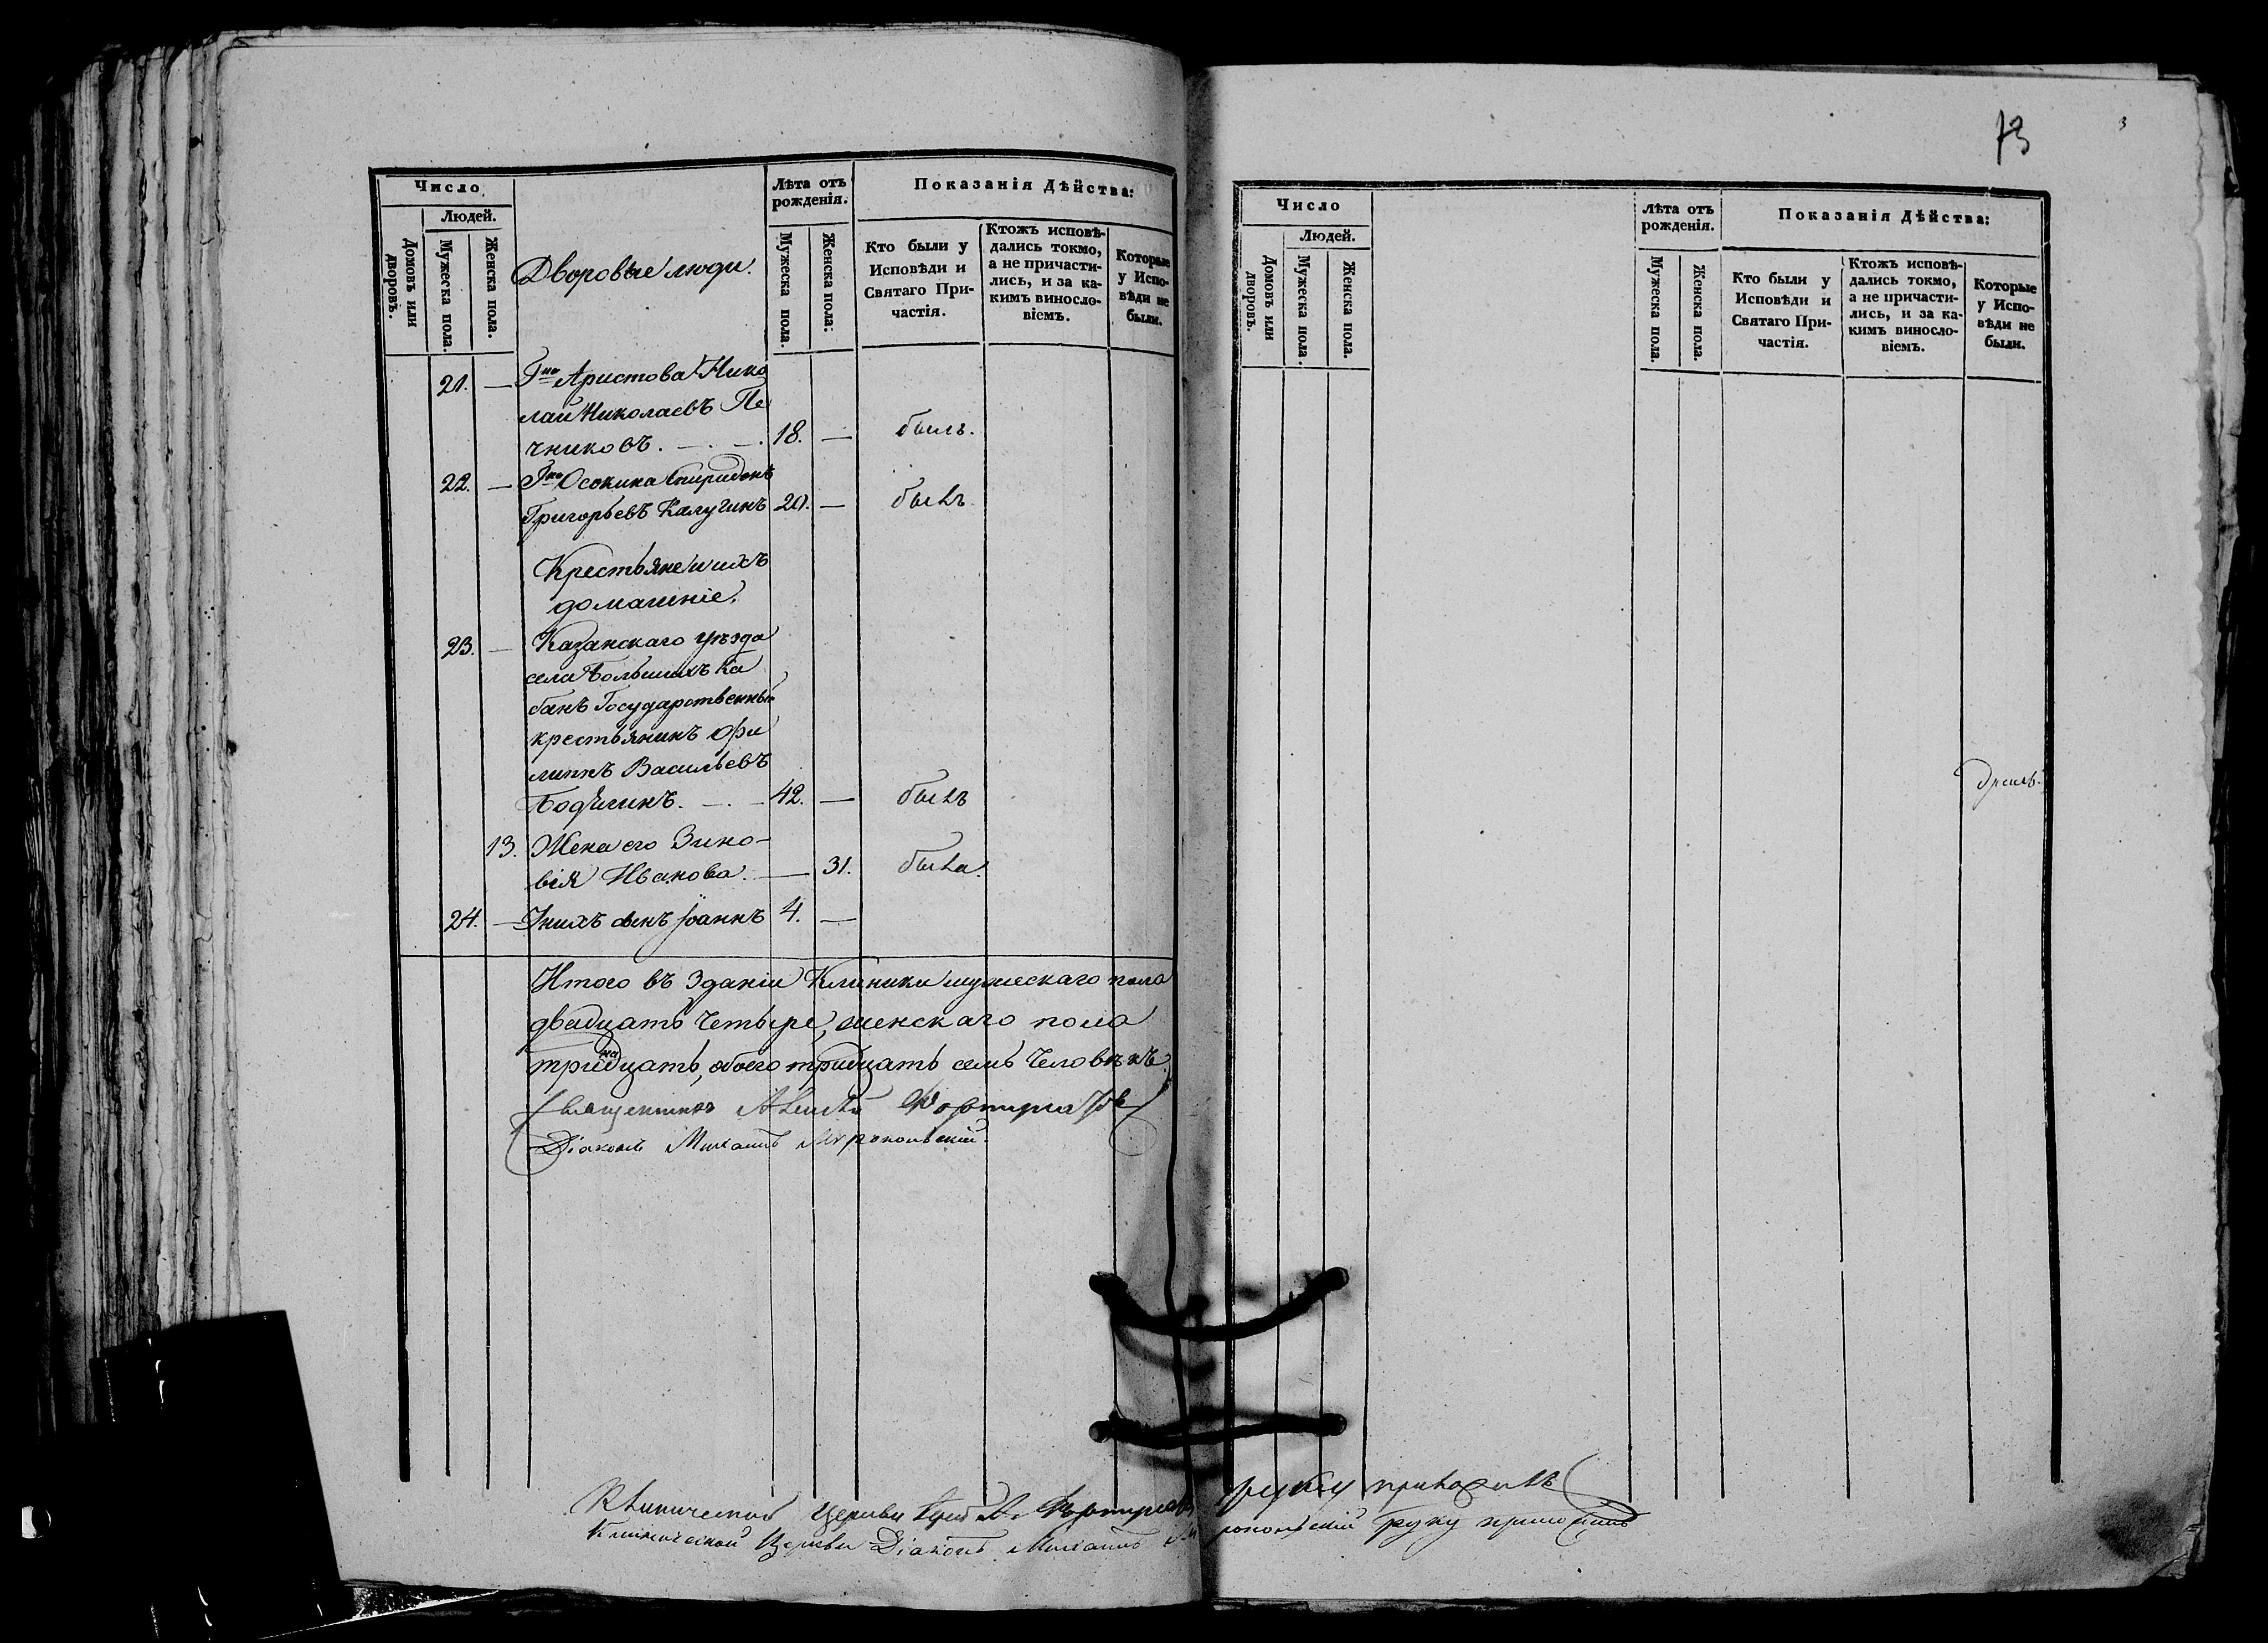 73
3
Число
Людей.
Домовъ или дворовъ.
Мужеска пола.
Женска пола.
Дворовые люди.
Лѣта отъ рожденія.
Мужеска пола.
Женска пола.
Показанія Дѣйства:
Кто были у Исповѣди и Святаго Причастія.
Ктожъ исповѣдались токмо, а не причастились, и за какимъ винословіемъ.
Которые у Исповѣди не были.
21. — Гна Аристова Нико
лай Николаевъ Пе
чниковъ. 18. — былъ.
22. — Гна Осокина Спиридонъ
Григорьевъ Калугинъ 20. — былъ
Крестьяне и ихъ
домашніе.
23. — Казанскаго уѣзда
села Большихъ Ка
банъ Государственный
крестьянинъ Фи
липпъ Васильевъ
42. — былъ
13. Жена его Зино-
вія Иванова. — 31. была.
24. — У нихъ сынъ Іоаннъ 4. —
Итого въ Зданіи Клиники мужескаго пола
двадцать четыре, женскаго пола
тринадцать, обоего тридцать семь человѣкъ.
Священникъ Алексѣй Фортунатовъ
Діаконъ Михаилъ
Клинической Церкви Діаконъ Михаилъ руку приложилъ
Число
Людей.
Домовъ или дворовъ.
Мужеска пола.
Женска пола.
Лѣта отъ рожденія.
Мужеска пола.
Женска пола.
Показанія Дѣйства:
Кто были у Исповѣди и Святаго Причастія.
Ктожъ исповѣдались токмо, а не причастились, и за какимъ винословіемъ.
Которые у Исповѣди не были.